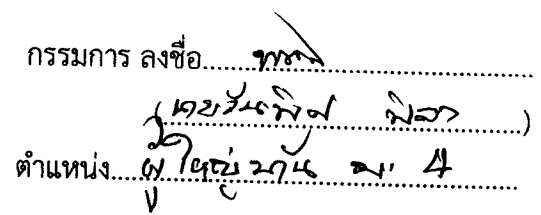 กรรมการ ลงชื่อ
(นายจันพิศ พิลา)
ตำแหน่ง ผู้ใหญ่บ้าน ม. 4